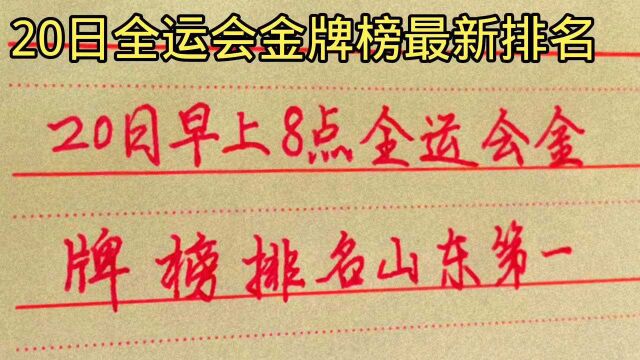 20日全运会金牌榜最新排名
20日早上8点全运会金
牌榜排名山东第一